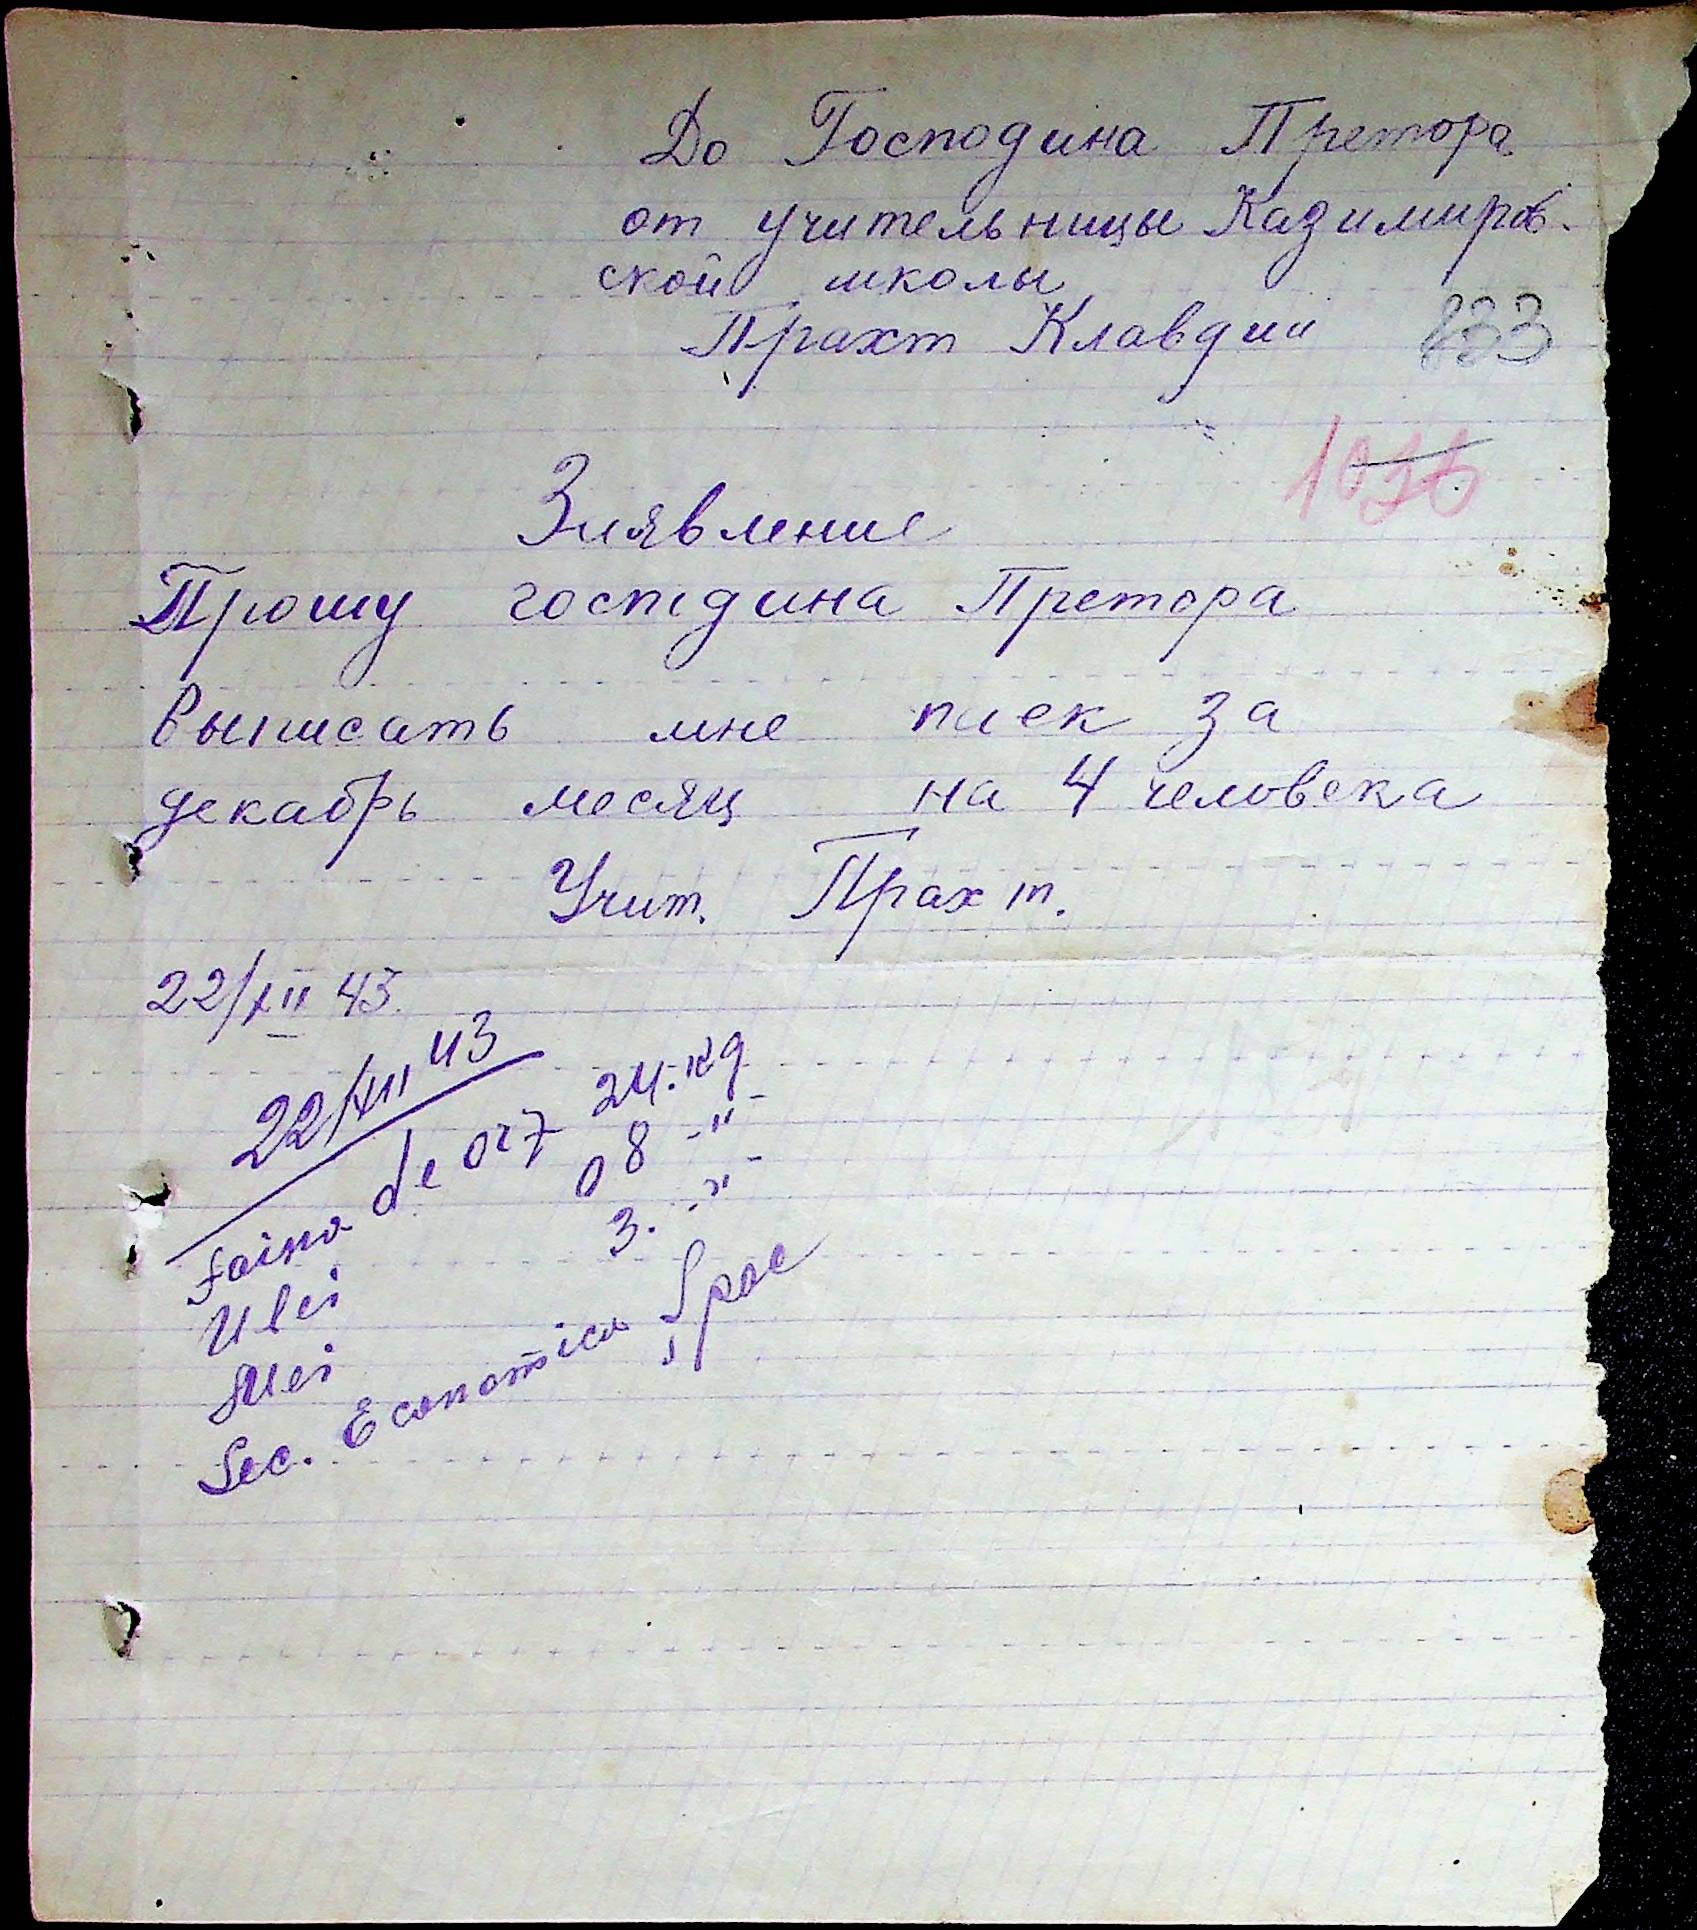 До Господина Претора
от учительницы Казимиров-
ской школы
Прахт Клавдии
833
Заявление
Прошу госпдина Претора
выписать мне паек за
декабрь месяц на 4 человека
Учит. Прахт.
22/XII 43.
22/XII 43
Faina de orz 24. kg
Ulei 08 -"-
Mei 3. -"-
Sec. Economica